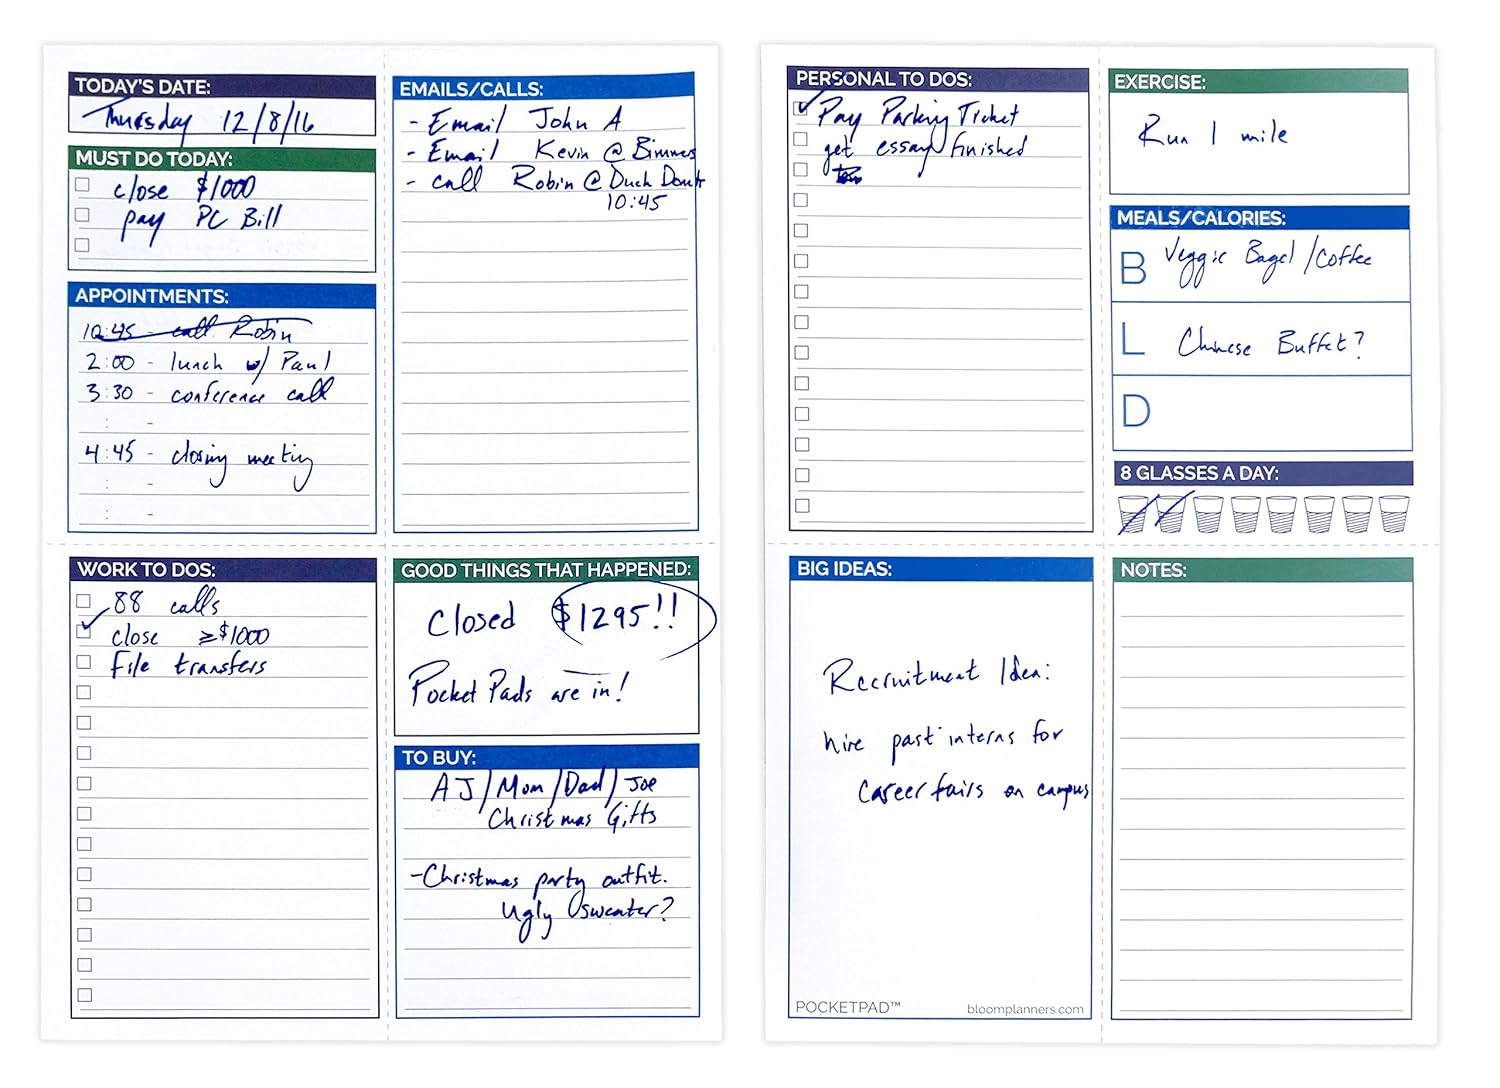 TODAY'S DATE:
Thursday 12/8/16
MUST DO TODAY:
close $1000
pay PC Bill
APPOINTMENTS:
10:45 - call Robin
2:00 - lunch w/ Paul
3:30 - conference call
: -
4:45 - closing meeting
: -
: -
EMAILS/CALLS:
- Email John A
- Email Kevin @ Bimmers
- call Robin @ Duck Donuts
10:45
WORK TO DOS:
88 calls
close ≥$1000
File transfers
GOOD THINGS THAT HAPPENED:
Closed $1295!!
Pocket Pads are in!
TO BUY:
AJ/Mom/Dad/Joe
Christmas Gifts
-Christmas party outfit.
Ugly sweater?
PERSONAL TO DOS:
Pay Parking Ticket
get essay finished
EXERCISE:
Run 1 mile
MEALS/CALORIES:
B Veggie Bagel/Coffee
L Chinese Buffet?
D
8 GLASSES A DAY:
BIG IDEAS:
Recruitment Idea:
hire past interns for
career fairs on campus
POCKETPAD™ bloomplanners.com
NOTES: